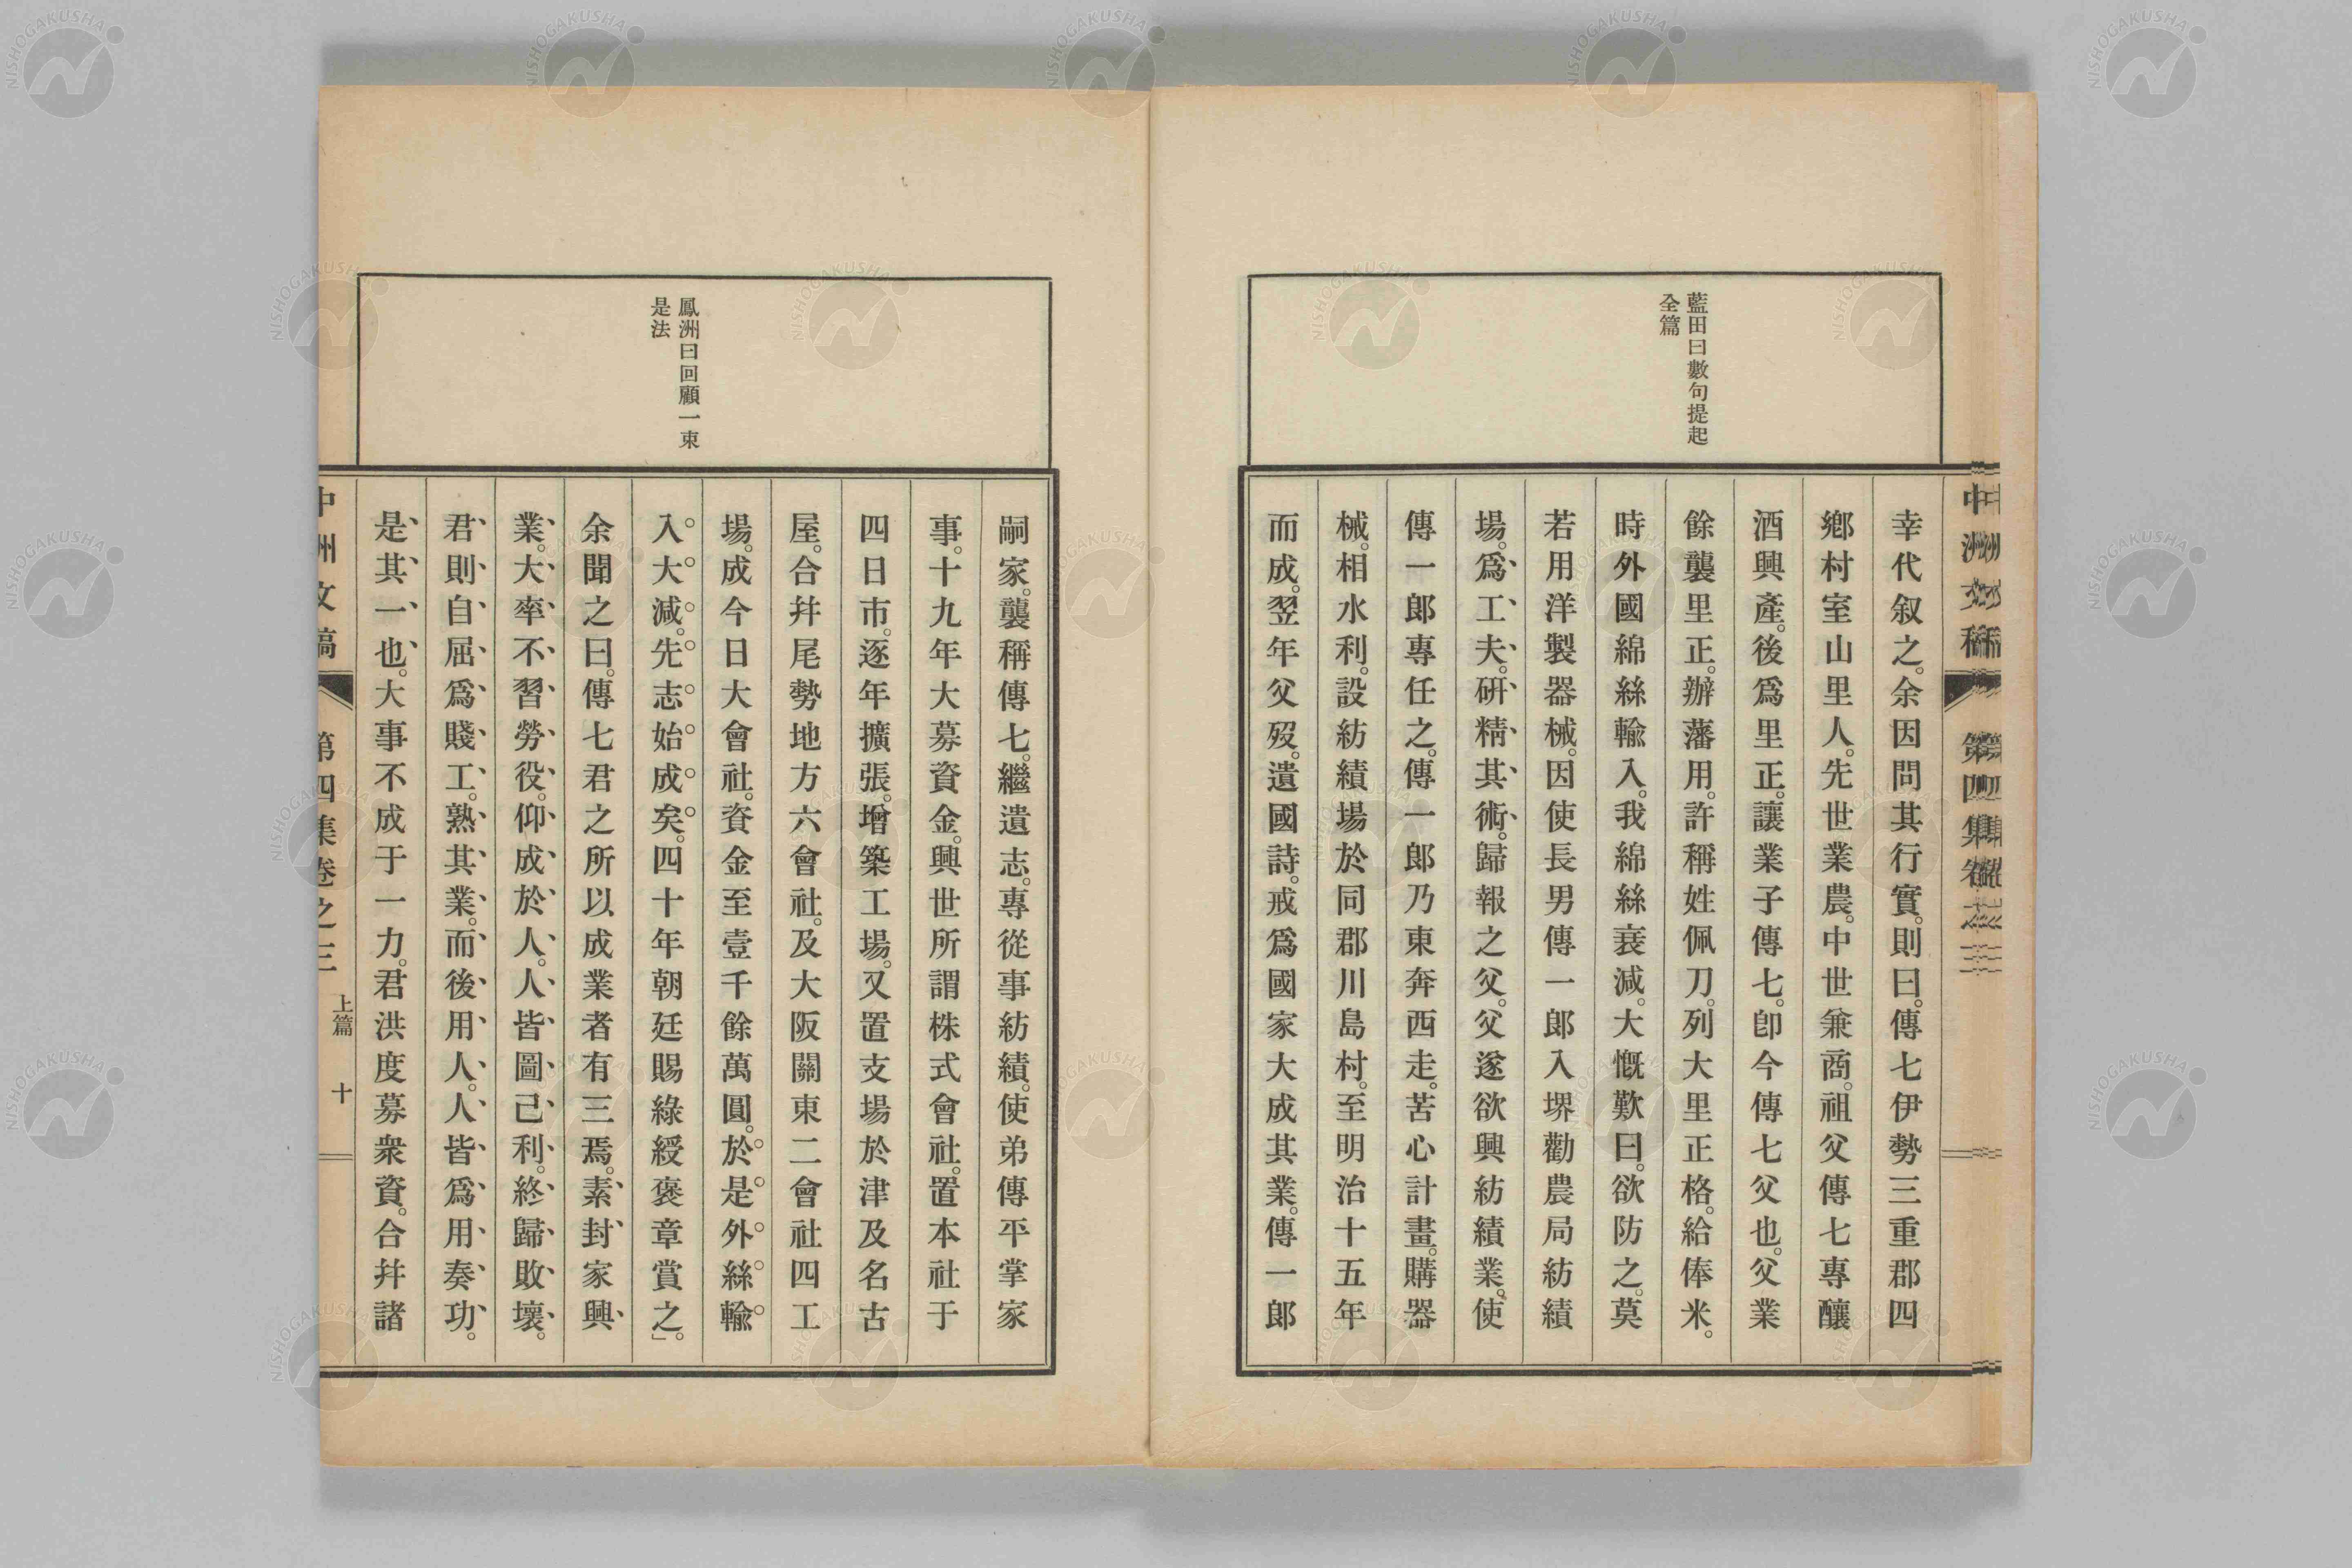 藍田曰數句提起
全篇
幸代叙之。余因問其行實。則曰。傳七伊勢三重郡四
鄕村室山里人。先世業農。中世兼商。祖父傳七專釀
酒興產。後爲里正。讓業子傳七。卽今傳七父也。父業
餘襲里正。辦藩用。許稱姓佩刀。列大里正格。給俸米。
時外國綿絲輸入。我綿絲衰減。大慨歎曰。欲防之。莫
若用洋製器械。因使長男傳一郞入堺勸農局紡績
場。爲、工、夫、。硏、精、其、術、。歸報之父。父遂欲興紡績業。使
傳一郞專任之。傳一郞乃東奔西走。苦心計畫。購器
械。相水利。設紡績場於同郡川島村。至明治十五年
而成。翌年父歿。遺國詩。戒爲國家大成其業。傳一郞
鳳洲曰回顧一束
是法
嗣家。襲稱傳七。繼遺志。專從事紡績。使弟傳平掌家
事。十九年大募資金。興世所謂株式會社。置本社于
四日市。逐年擴張。增築工場。又置支場於津及名古
屋。合幷尾勢地方六會社。及大阪關東二會社四工
場。成今日大會社。資金至壹千餘萬圓。於。是。外。絲。輸。
入。大。減。先。志。始。成。矣。四十年朝廷賜綠綬褒章賞之。」
余聞之曰。傳七君之所以成業者有三焉。素、封、家興、
業、。大、率、不、習、勞、役、。仰、成、於、人、。人、皆、圖、己、利、。終、歸、敗、壞、。
君、則、自、屈、爲、賤、工、。熟、其、業、。而、後、用、人、。人、皆、爲、用、奏、功、。
是、其、一、也、。大事不成于一力。君洪度募衆資。合幷諸
中洲文稿　第四集卷之三　上篇　十